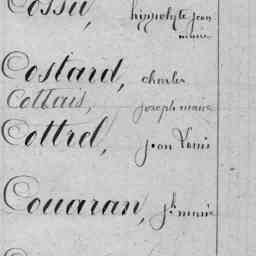 Cossu, hyppolyte jean
marie
Costard, charles
Cottais, joseph marie
Cottrel, jean Louis
Couaran, jh marie